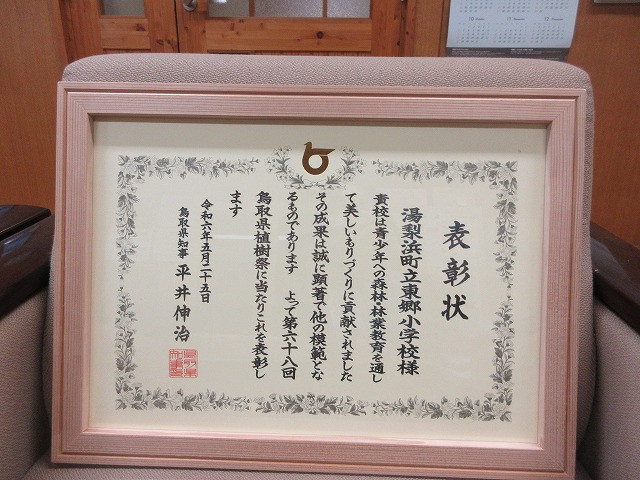 表彰状
湯梨浜町立東郷小学校様
貴校は青少年への森林・林業教育を通し
て美しいもりづくりに貢献されました
その成果は誠に顕著で他の模範とな
るものであります よって第六十八回
鳥取県植樹祭に当たりこれを表彰し
ます
令和六年五月二十五日
鳥取県知事 平井伸治